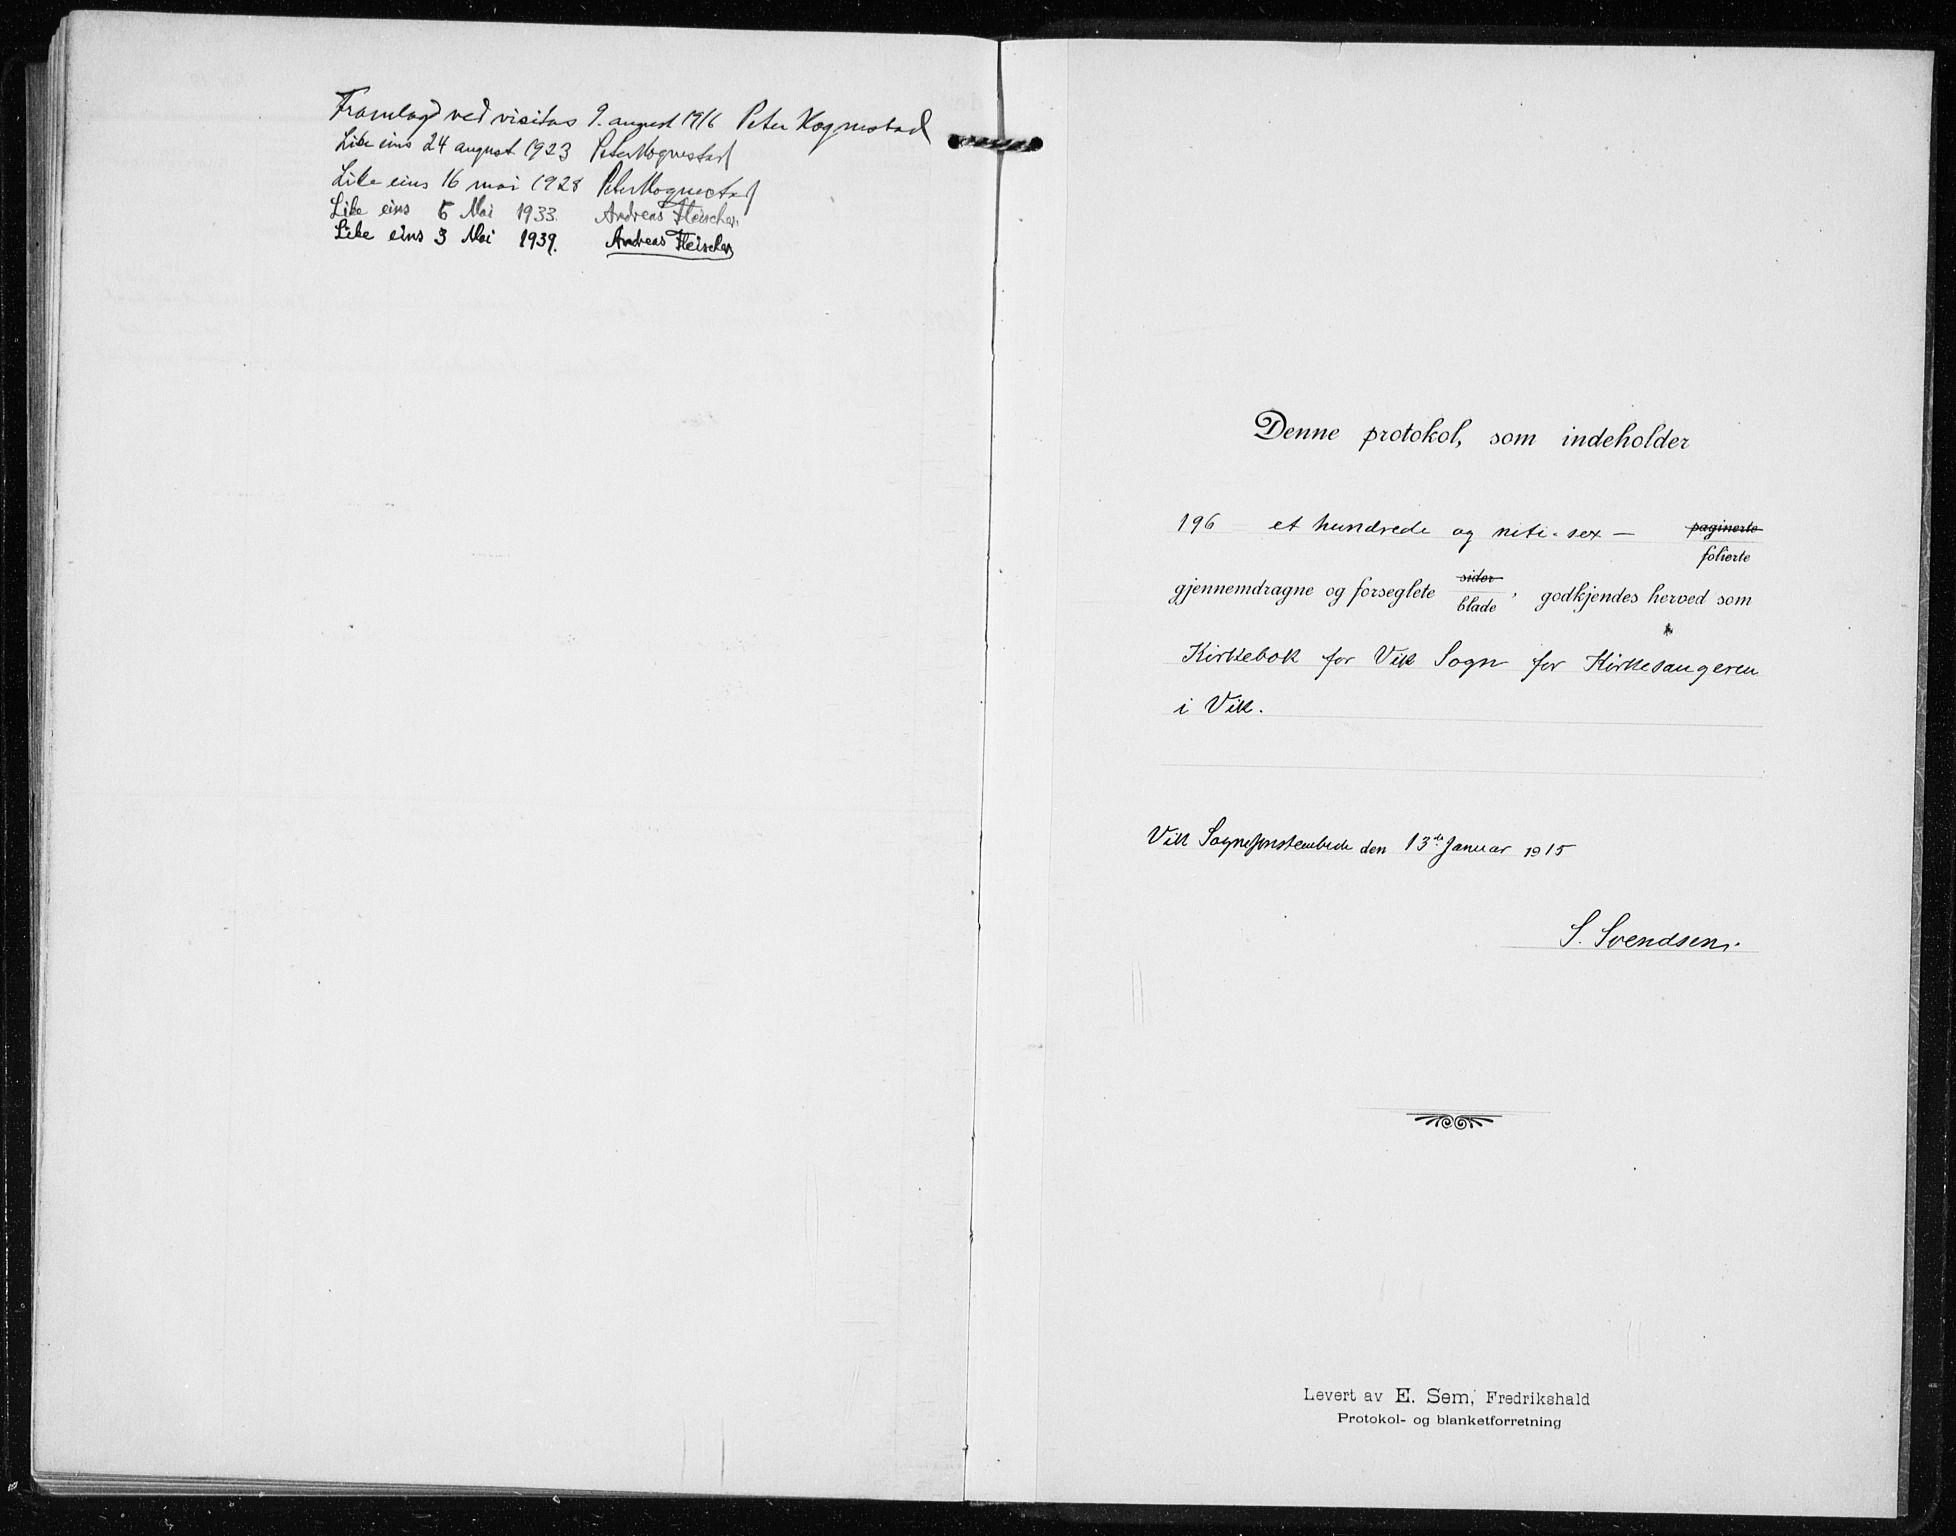 Framlagd ved visitas 9. august 1916 Peter Hognestad
Like eins 24 august 1923 Peter Hognestad
Like eins 16 mai 1928 Peter Hognestad
Like eins 5 Mai 1933. Andreas Fleischer.
Like eins 3 Mai 1939. Andreas Fleischer
Denne protokol, som indeholder
196 et hundrede og niti-sex — paginerte
folierte
gjennemdragne og forseglete sider blade, godkjendes herved som
Kirkebok for Vik Sogn for Kirkesangeren
i Vik.
Vik Sogneprestembede den 13de Januar 1915
S. Svendsen.
Levert av E. Sem, Fredrikshald
Protokol- og blanketforretning